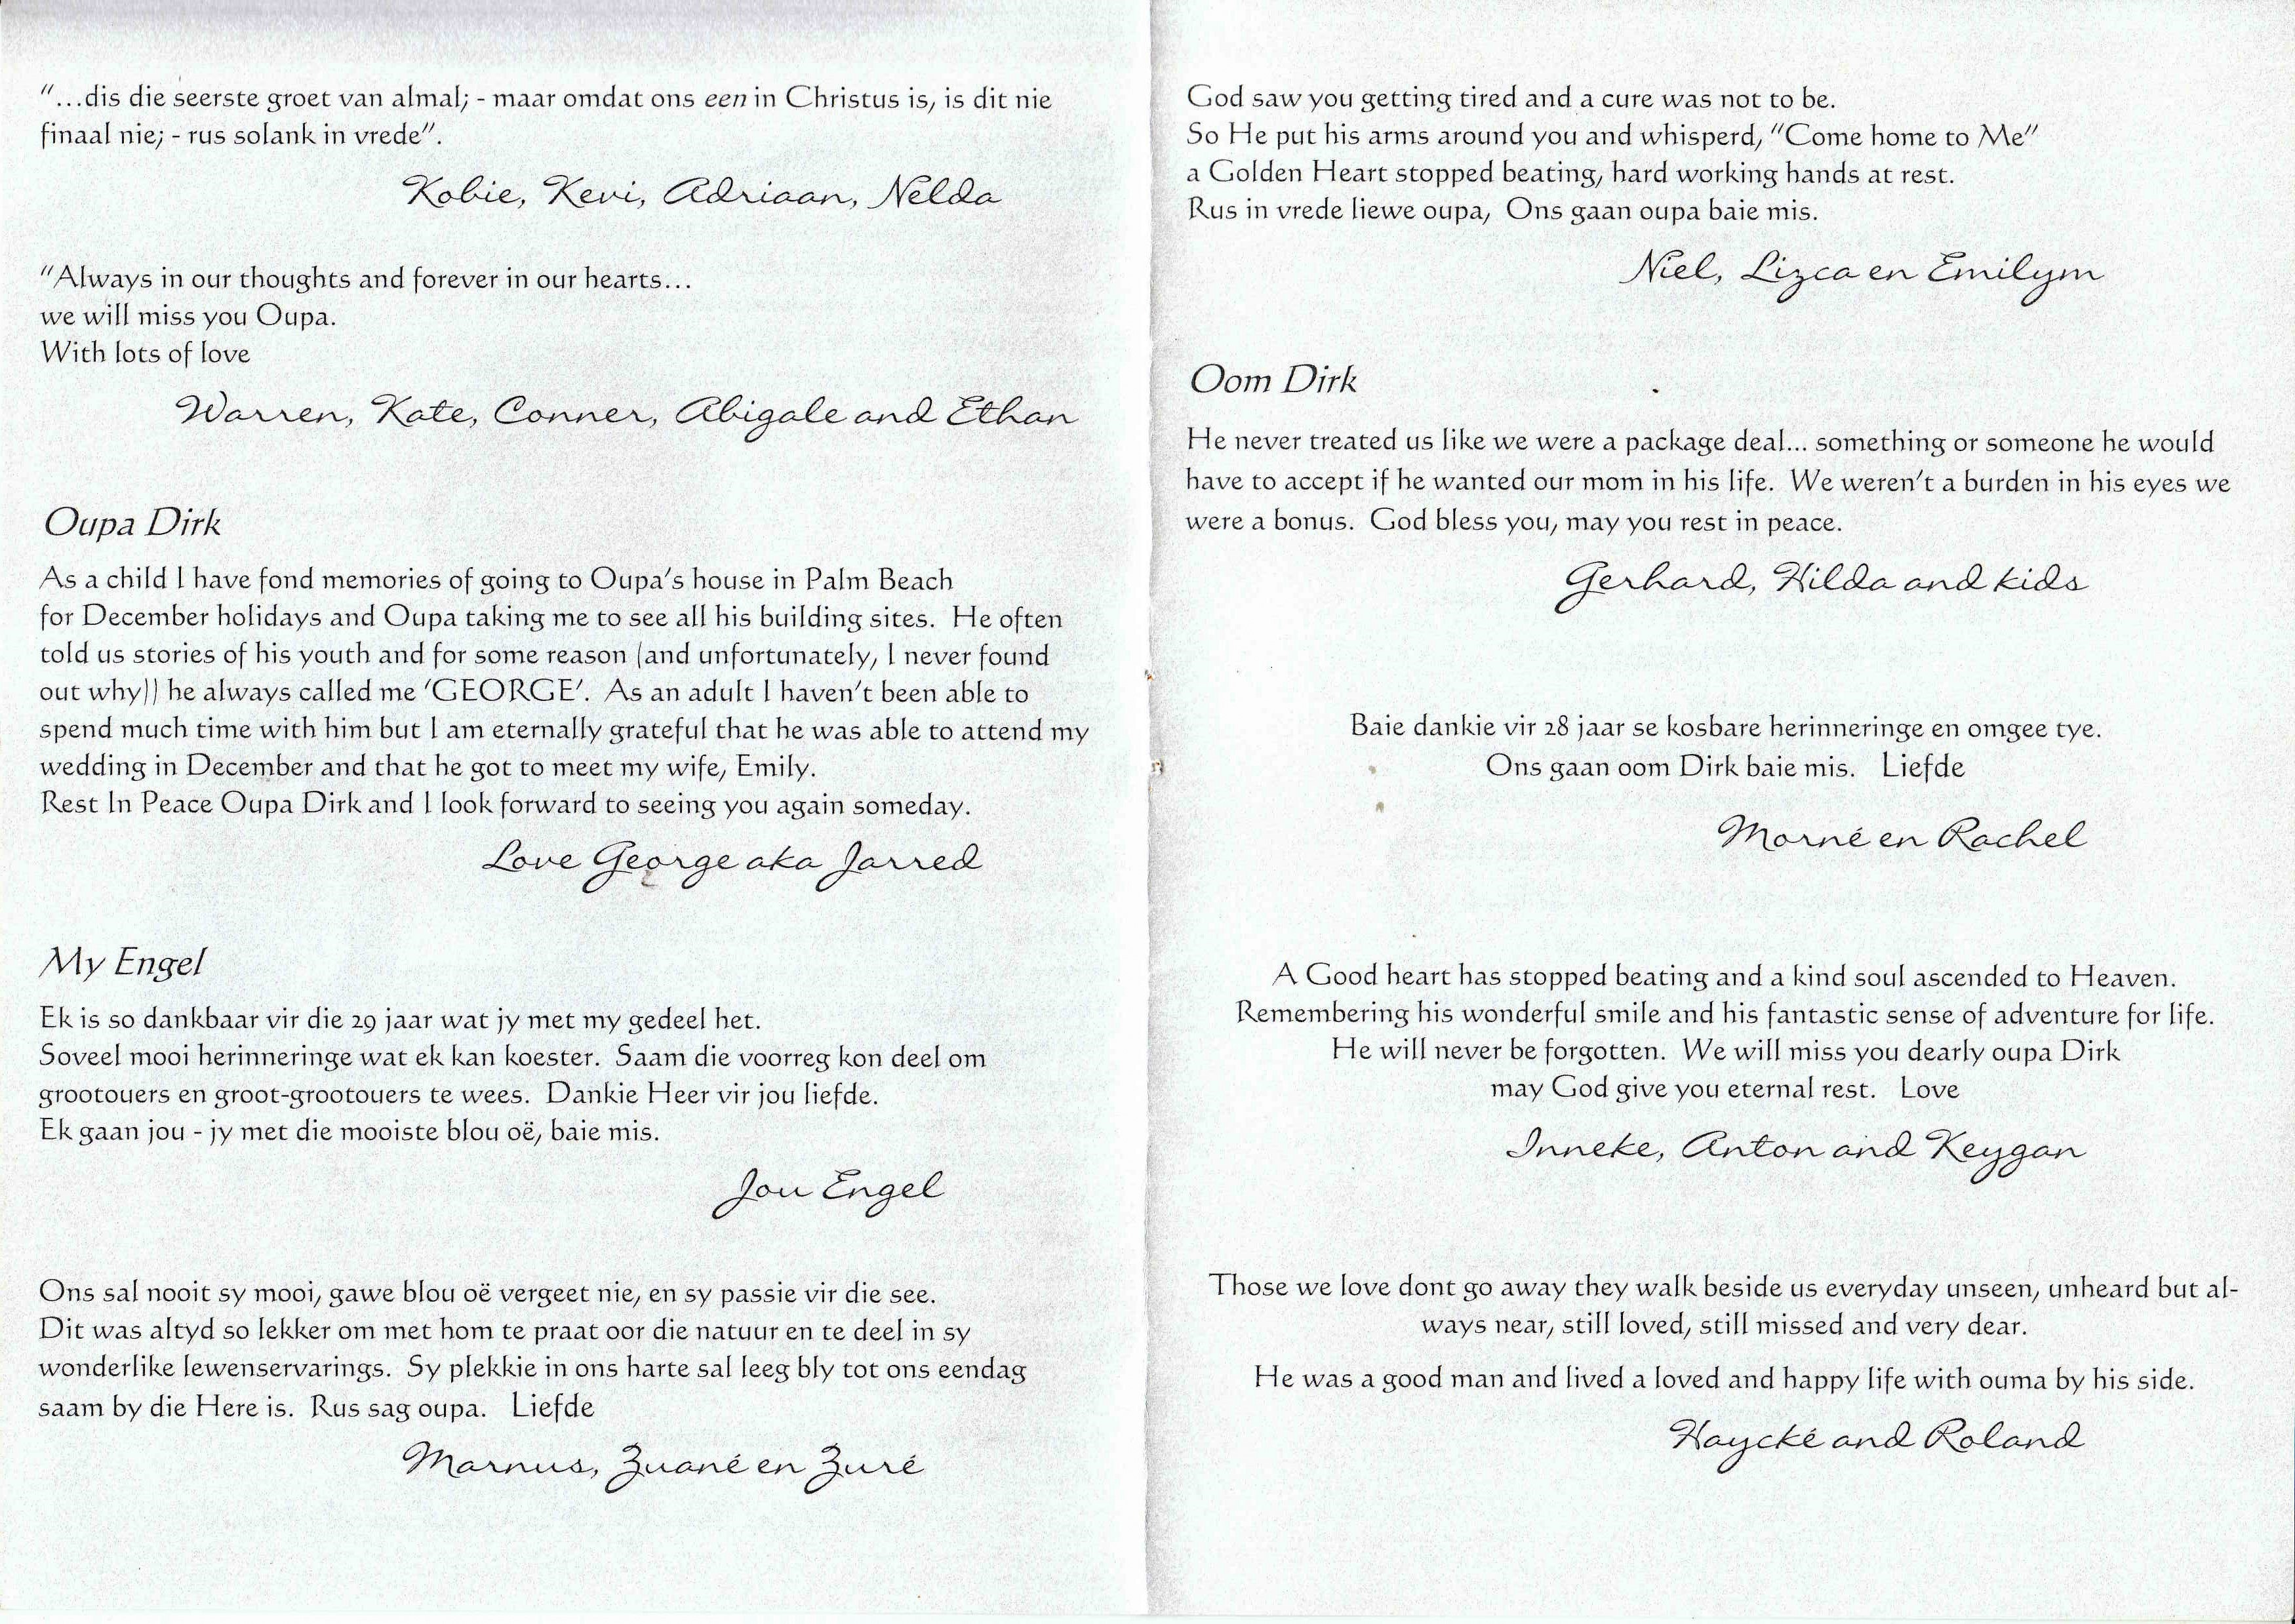 "...dis die seerste groet van almal; - maar omdat ons een in Christus is, is dit nie
finaal nie; - rus solank in vrede".
Kobie, Kevi, Adriaan, Nelda
"Always in our thoughts and forever in our hearts...
we will miss you Oupa.
With lots of love
Warren, Kate, Conner, Abigale and Ethan
Oupa Dirk
As a child I have fond memories of going to Oupa's house in Palm Beach
for December holidays and Oupa taking me to see all his building sites. He often
told us stories of his youth and for some reason (and unfortunately, I never found
out why)) he always called me 'GEORGE'. As an adult I haven't been able to
spend much time with him but I am eternally grateful that he was able to attend my
wedding in December and that he got to meet my wife, Emily.
Rest In Peace Oupa Dirk and I look forward to seeing you again someday.
Love George aka Jarred
My Engel
Ek is so dankbaar vir die 29 jaar wat jy met my gedeel het.
Soveel mooi herinneringe wat ek kan koester. Saam die voorreg kon deel om
grootouers en groot-grootouers te wees. Dankie Heer vir jou liefde.
Ek gaan jou - jy met die mooiste blou oë, baie mis.
Jou Engel
Ons sal nooit sy mooi, gawe blou oë vergeet nie, en sy passie vir die see.
Dit was altyd so lekker om met hom te praat oor die natuur en te deel in sy
wonderlike lewenservarings. Sy plekkie in ons harte sal leeg bly tot ons eendag
saam by die Here is. Rus sag oupa. Liefde
Marnus, Zuané en Zuré
God saw you getting tired and a cure was not to be.
So He put his arms around you and whisperd, "Come home to Me"
a Golden Heart stopped beating, hard working hands at rest.
Rus in vrede liewe oupa, Ons gaan oupa baie mis.
Niel, Lizca en Emilym
Oom Dirk
He never treated us like we were a package deal... something or someone he would
have to accept if he wanted our mom in his life. We weren't a burden in his eyes we
were a bonus. God bless you, may you rest in peace.
Gerhard, Hilda and kids
Baie dankie vir 28 jaar se kosbare herinneringe en omgee tye.
Ons gaan oom Dirk baie mis. Liefde
Morné en Rachel
A Good heart has stopped beating and a kind soul ascended to Heaven.
Remembering his wonderful smile and his fantastic sense of adventure for life.
He will never be forgotten. We will miss you dearly oupa Dirk
may God give you eternal rest. Love
Inneke, Anton and Keygan
Those we love dont go away they walk beside us everyday unseen, unheard but al-
ways near, still loved, still missed and very dear.
He was a good man and lived a loved and happy life with ouma by his side.
Haycké and Roland